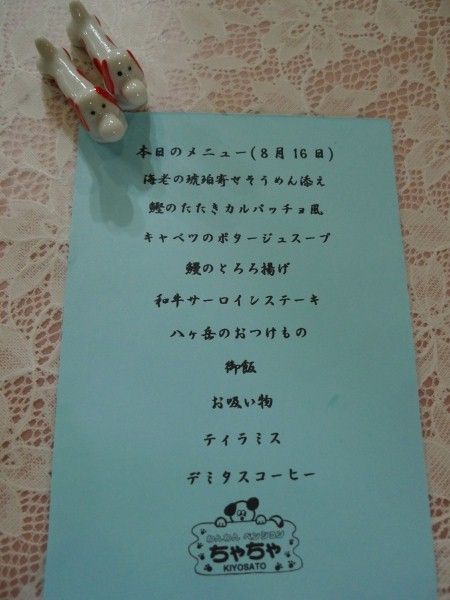 本日のメニュー(8月16日)
海老の琥珀寄せそうめん添え
鰹のたたきカルパッチョ風
キャベツのポタージュスープ
鰻のとろろ揚げ
和牛サーロインステーキ
八ヶ岳のおつけもの
御飯
お吸い物
ティラミス
デミタスコーヒー
わんわん ペンション
ちゃちゃ
KIYOSATO